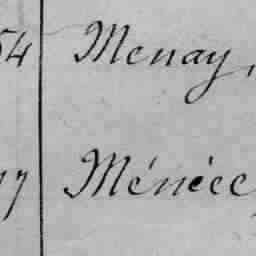 54 Menay,
77 Ménéee